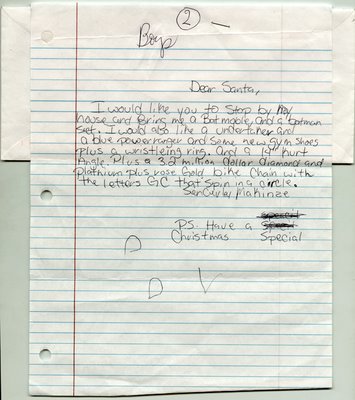 2
Boys
Dear Santa,
I would like you to stop by my
house and bring me a Batmobile, and a batman
set. I would also like a undertaker and
a blue powerranger and some new gym shoes
plus a wristleing ring. And a Kurt
Angle. Plus a 32 million dollar diamond and
plathinum plus rose gold bike chain with
the letters GC that spin in a circle.
Makinze
P.S. Have a
Christmas Special